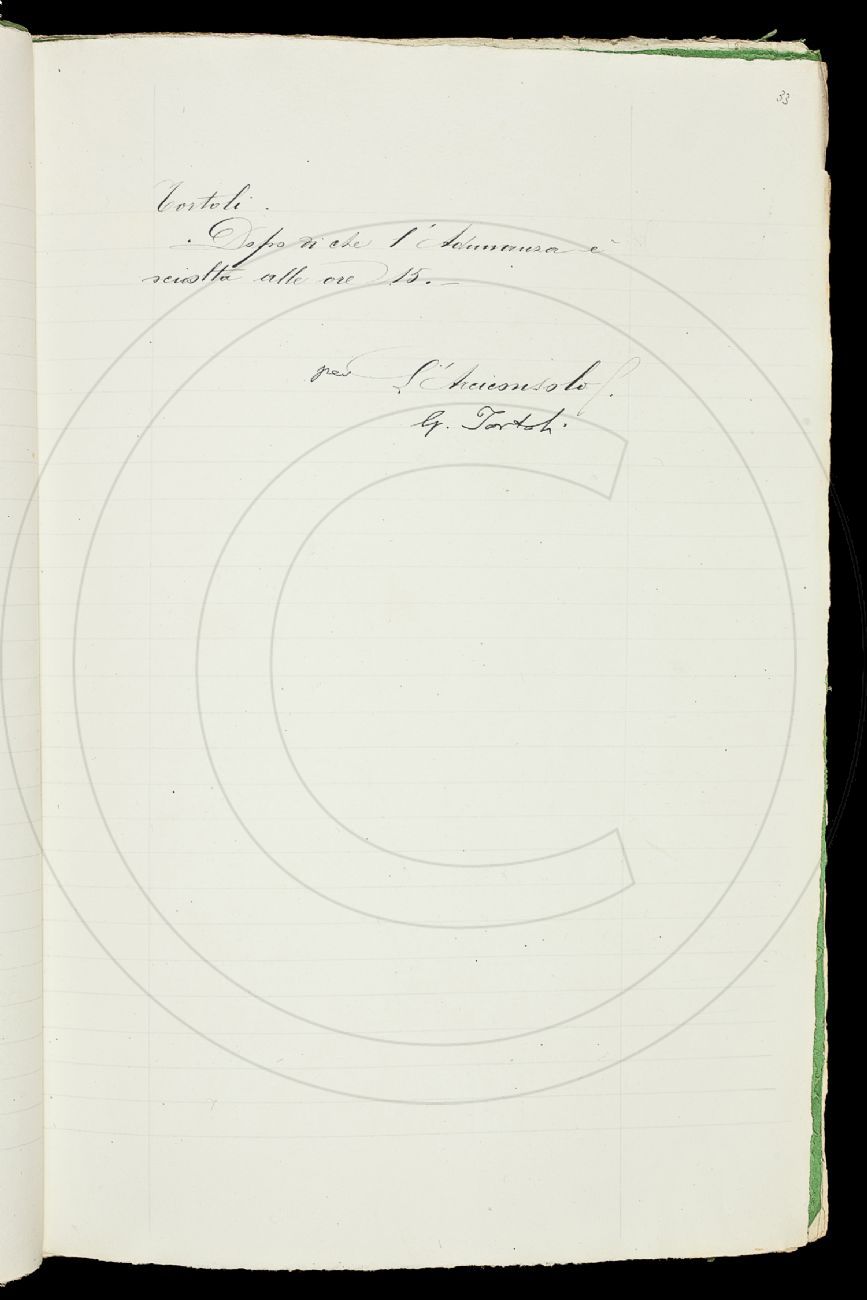 33
Tortoli.
Dopo di che l'Adunanza è
sciolta alle ore 15.—
per L'Arciconsolo
G. Tortoli